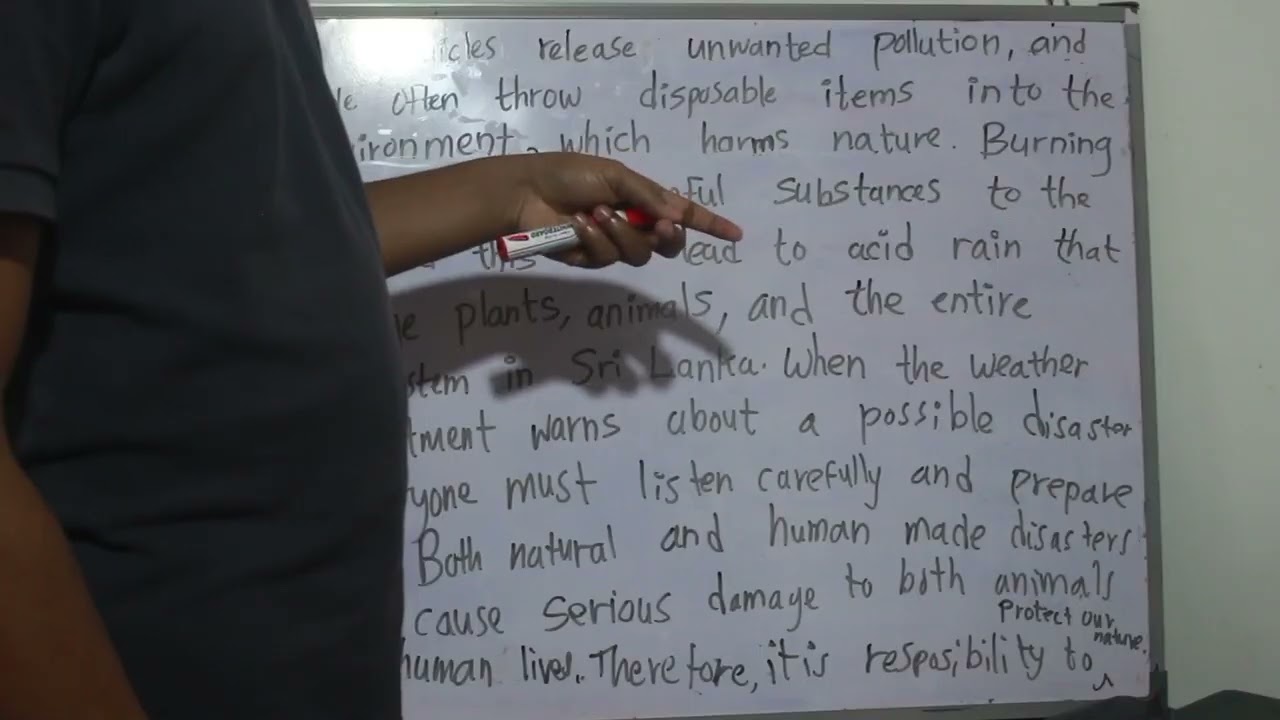 icles release unwanted pollution, and
often throw disposable items into the
ironment, which harms nature. Burning
ful substances to the
this lead to acid rain that
plants, animals, and the entire
stem in Sri Lanka. When the weather
tment warns about a possible disaster
yone must listen carefully and prepare
Both natural and human made disasters
cause serious damage to both animals
Protect our
nature.
human lives. Therefore, it is resposibility to